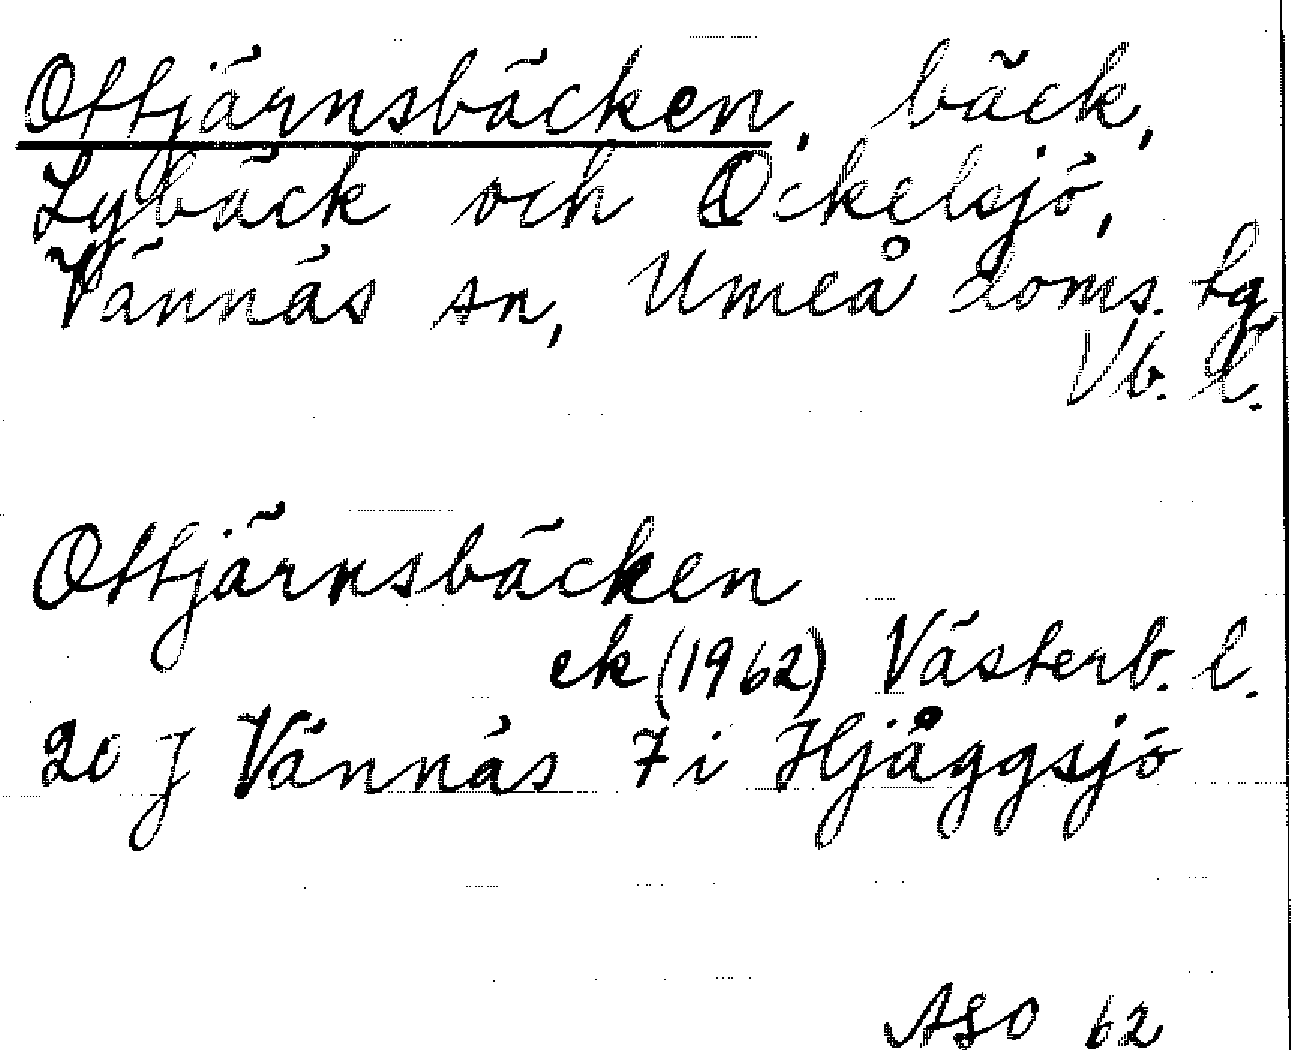 Ottjärnsbäcken, bäck,
Lybäck och Ockelsjö,
Vännäs sn, Umeå doms. tg
Vb. l.
Ottjärnsbäcken
ek (1962) Västerb. l.
20 J Vännäs 7 i Hjåggsjö
ASO 62